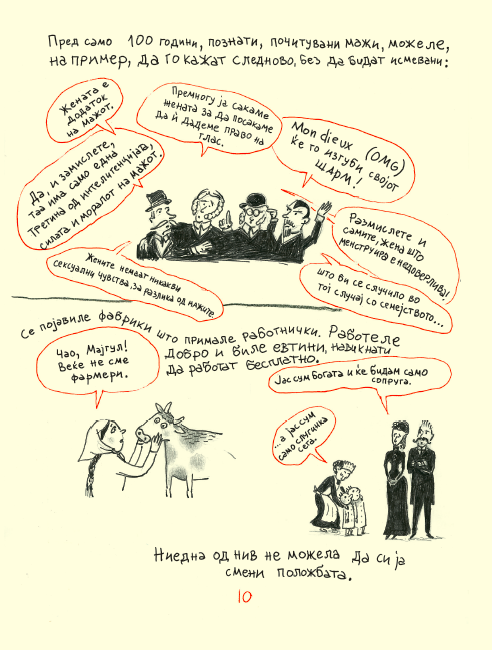 Пред само 100 години, познати, почитувани мажи, можеле,
на пример, да го кажат следново, без да бидат исмевани:
Жената е
додаток
на мажот.
Премногу ја сакаме
жената за да посакаме
да ѝ дадеме право на
глас.
Mon dieux (OMG)
ќе го изгуби својот
шарм!
Да, и замислете,
таа има само една
третина од интелигенцијата,
силата и моралот на мажот.
Размислете и
самите, жена што
менструира е недоверлива!
Жените немаат никакви
сексуални чувства, за разлика од мажите.
што ви се случило во
тој случај со семејството...
Се појавиле фабрики што примале работнички. Работеле
добро и биле евтини, навикнати
да работат бесплатно.
Чао, Мајгул!
Веќе не сме
фармери.
Јас сум богата и ќе бидам само
сопруга.
...а јас сум
само слугинка
сега.
Ниедна од нив не можела да си ја
смени положбата.
10